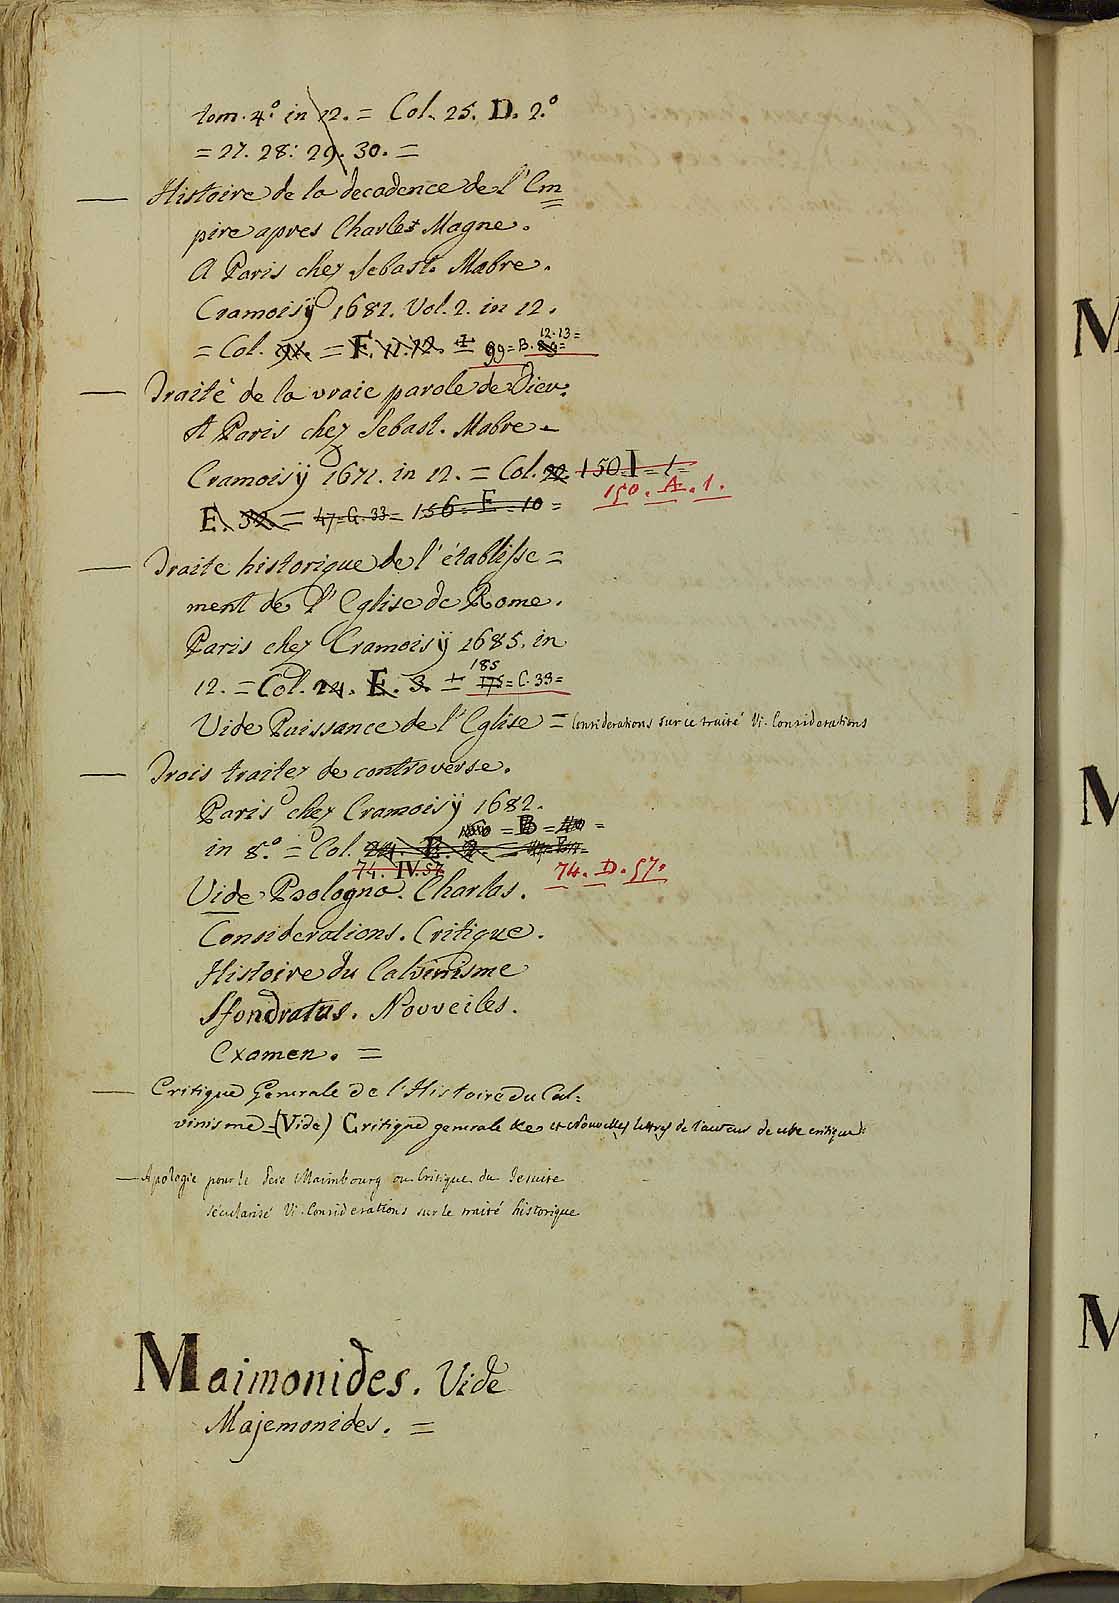 tom. 4.º in 12. = Col. 25. D. 2.º
= 27. 28: 29. 30. =
— Histoire de la decadence de l'Em
pire apres Charles Magne.
A Paris chez Sebast. Mabre.
Cramoisÿ 1682. Vol. 2. in 12.
12. 13 =
= Col. 91. = F. 11. 12. = 99 = B. 89 =
— Traité de la vraie parole de Dieu.
A Paris chez Sebast. Mabre =
Cramoisÿ 1671. in 12. = Col. 22. 150. I = 1 =
150. A. 1.
E. 32. = 47 = G. 33 = 156. E. 10 =
— Traite historique de l'établisse =
ment de l'Eglise de Rome.
Paris chez Cramoisÿ 1685. in
185
12. = Col. 24. E. 3. = 175 = C. 33 =
Vide Puissance de l'Eglise = Considerations sur ce traité Vi. Considerations
— Trois traitez de controverse.
Paris chez Cramoisÿ 1682.
= B =
in 8.º = Col. 24. E. 2. =
74. IV. 57 74. D. 57.
Vide Psologno. Charlas.
Considerations. Critique.
Histoire du Calvinisme
Sfondratus. Nouvelles.
Examen. =
— Critique Generale de l'Histoire du Cal=
vinisme = (Vide) Critique generale &c et Nouvelles lettres de l'auteur de cette critique =
— Apologie pour le Pere Maimbourg ou Critique du Jesuite
sécularisé Vi. Considerations sur le traité historique
Maimonides. Vide
Majemonides. =
M
M
M